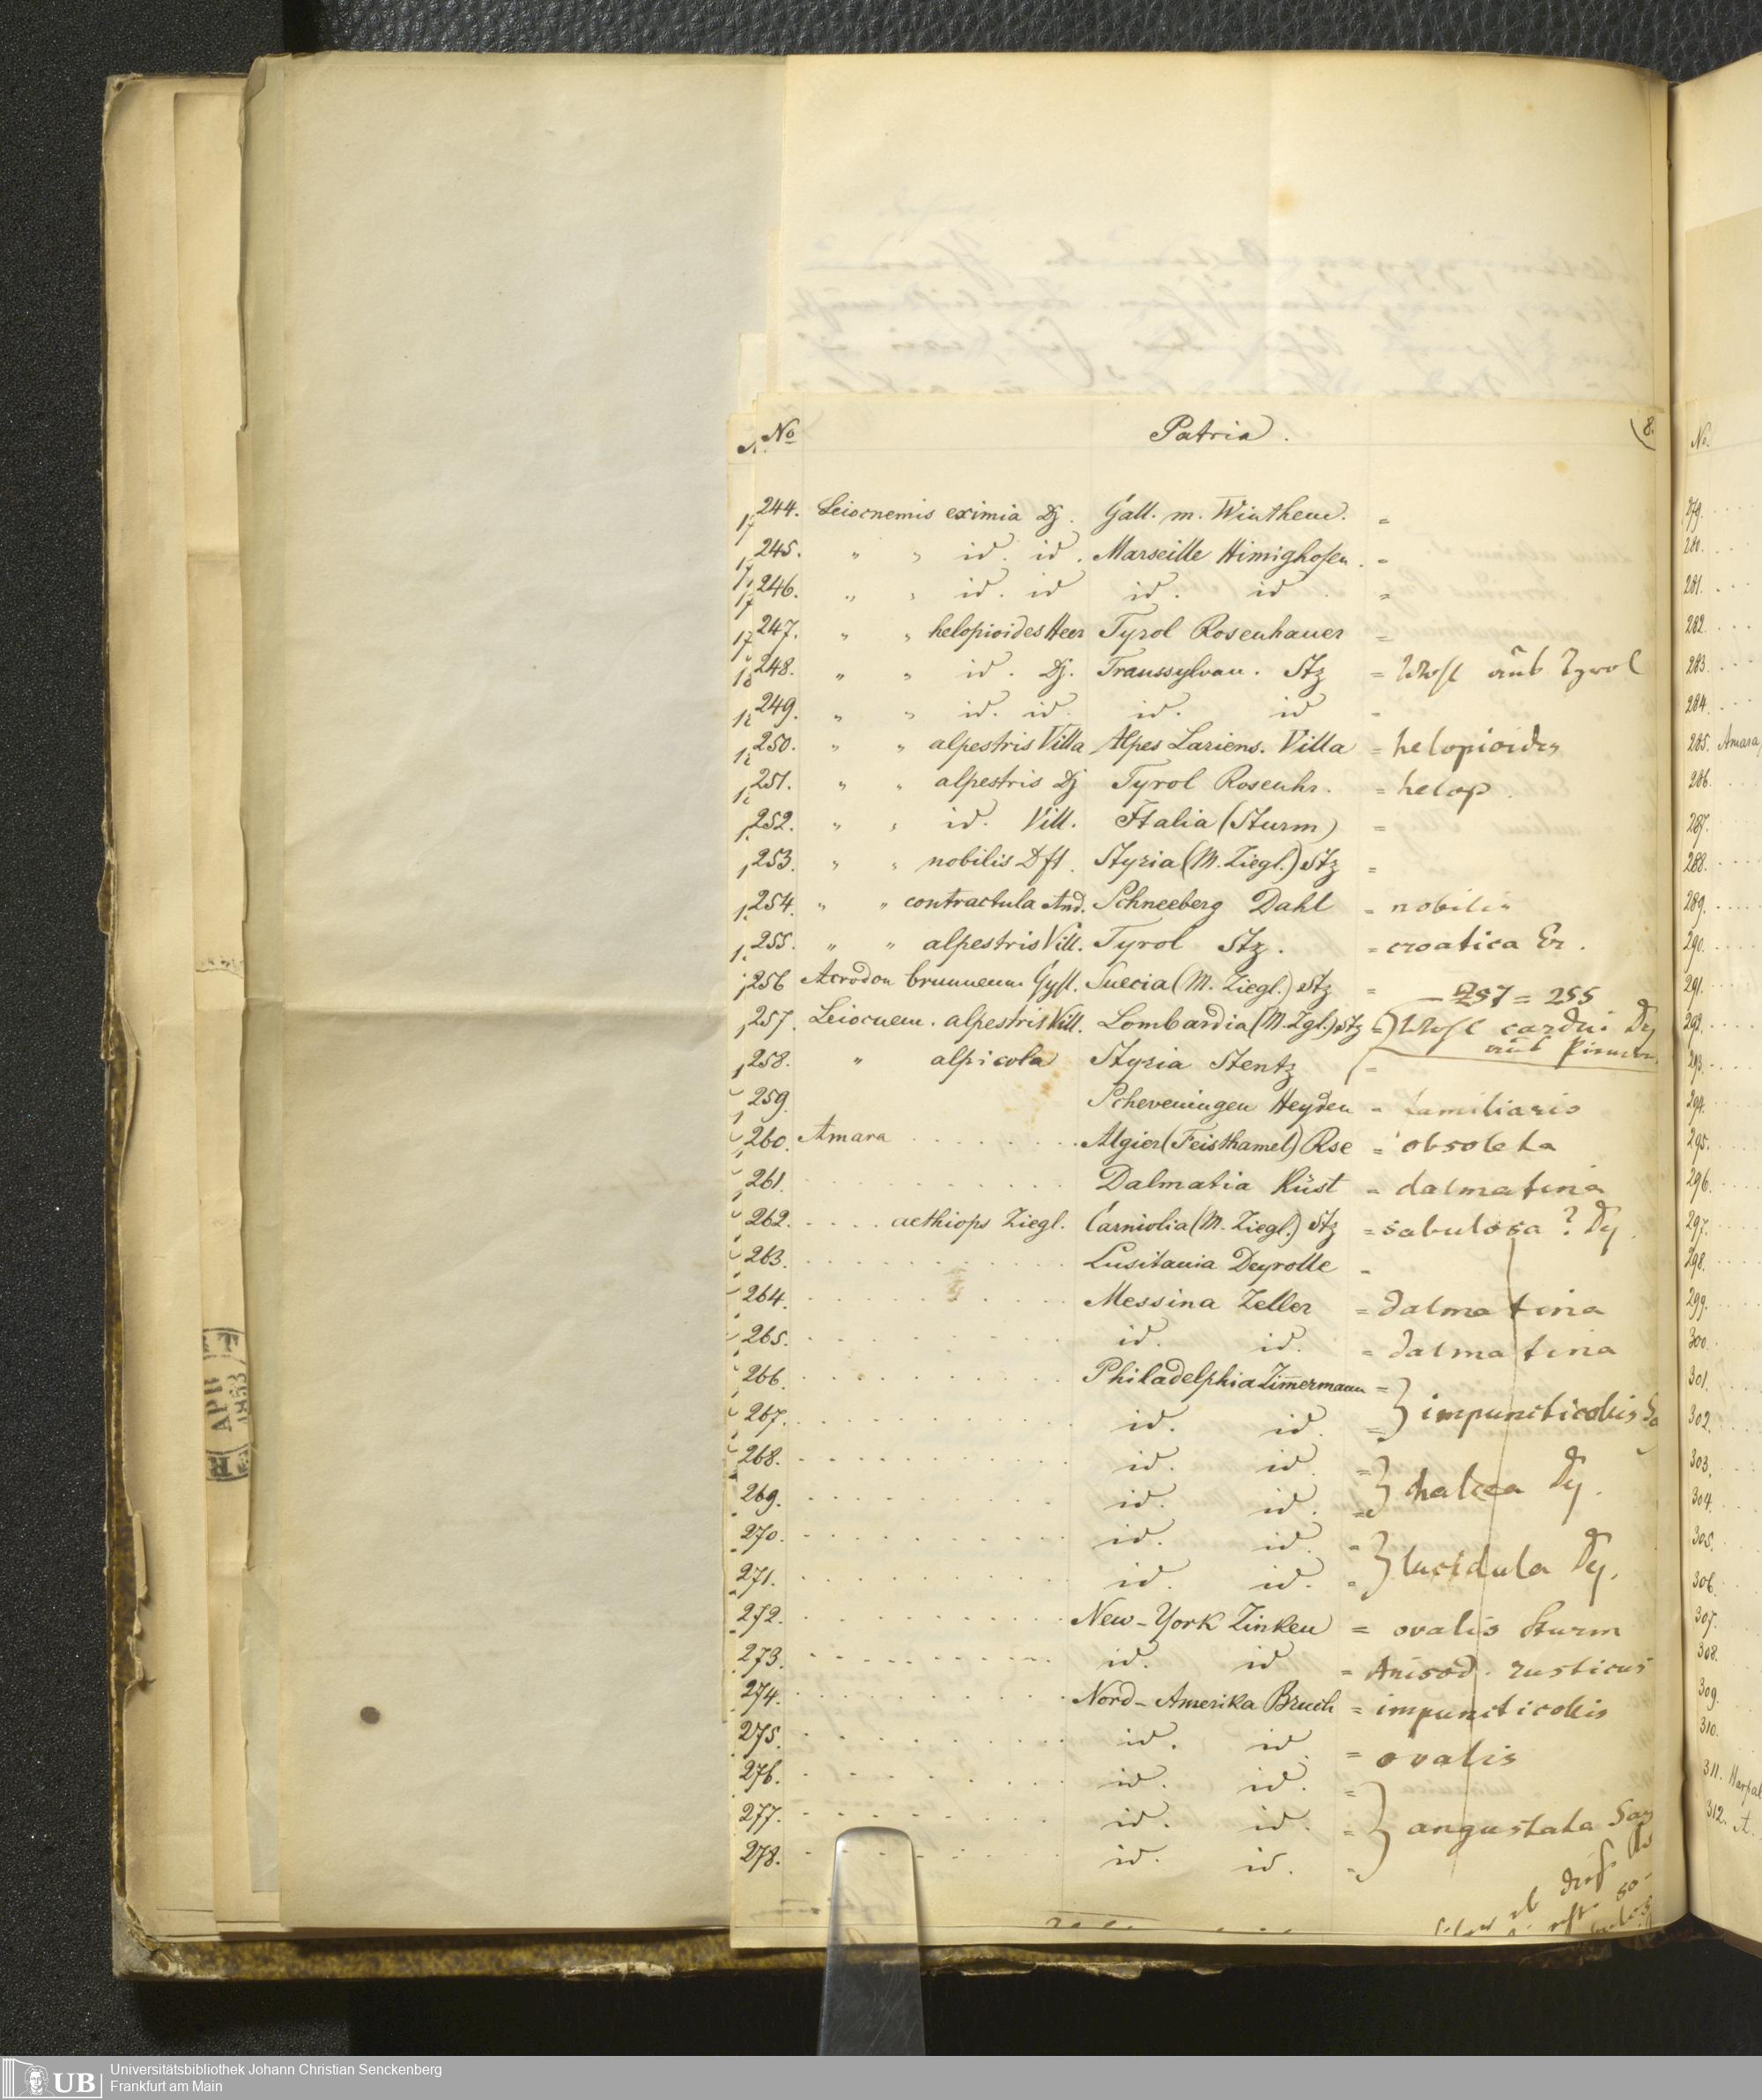 No Patria. 8.
244. Leiocnemis eximia Dj. Gall. m. Winthem. =
245. " " id. id. Marseille Himighofen. =
246. " " id. id id. id =
247. " " helopioides Heer Tyrol Rosenhauer =
248. " " id. Dj. Transsylvan. Stz = Wohl aus Tyrol
249. " " id. id. id. id =
250. " " alpestris Villa Alpes Lariens. Villa = helopioides
251. " " alpestris Dj Tyrol Rosenhr. = helop.
252. " " id. Vill. Italia (Sturm) =
253. " " nobilis Dft. Styria (M. Ziegl.) Stz =
254. " " contractula And. Schneeberg Dahl = nobilis
255. " " alpestris Vill. Tyrol Stz. = croatica Er.
256 Acrodon brunneum Gyll. Suecia (M. Ziegl.) Stz = — 257 = 255
257. Leiocnem. alpestris Vill. Lombardia (M. Zgl.) Stz = Wohl cardui Dj
aus Piemon.
258. " alpicola Styria Stentz =
259. Scheveningen Heyden = familiaris
260. Amara . . . . Algier (Feisthamel) Rse = obsoleta
261. . . . . Dalmatia Küst = dalmatina
262. . . . . aethiops Ziegl. Carniolia (M. Ziegl.) Stz = sabulosa? Dj.
263. . . . . Lusitania Deyrolle =
264. . . . . Messina Zeller = dalmatina
265. . . . . id. id. = dalmatina
266. . . . . Philadelphia Zimmermann =
267. . . . . id. id. = } impuncticollis Sa
268. . . . . id. id. =
269. . . . . id. id. = } chalcea Dj.
270. . . . . id. id. =
271. . . . . id. id. = } lucidula Dj.
272. . . . . New-York Zinken = ovalis Sturm
273. . . . . id. id = Anisod. rusticus
274. . . . . Nord-Amerika Bruch = impuncticollis
275. . . . . id. id. = ovalis
276. . . . . id. id. =
277. . . . . id. id. = } angustata Say
278. . . . . id. id. =
No.
279. . . .
280. . . .
281. . . .
282. . . .
283. . . .
284. . . .
285. Amara
286. . . .
287. . . .
288. . . .
289. . . .
290. . . .
291. . . .
292. . . .
293. . . .
294. . . .
295. . . .
296. . . .
297. . . .
298. . . .
299. . . .
300. . . .
301. . . .
302. . . .
303. . . .
304. . . .
305. . . .
306. . . .
307. . . .
308. . . .
309.
310.
311. Harpal
312. A.
APR
1853
UB Universitätsbibliothek Johann Christian Senckenberg
Frankfurt am Main